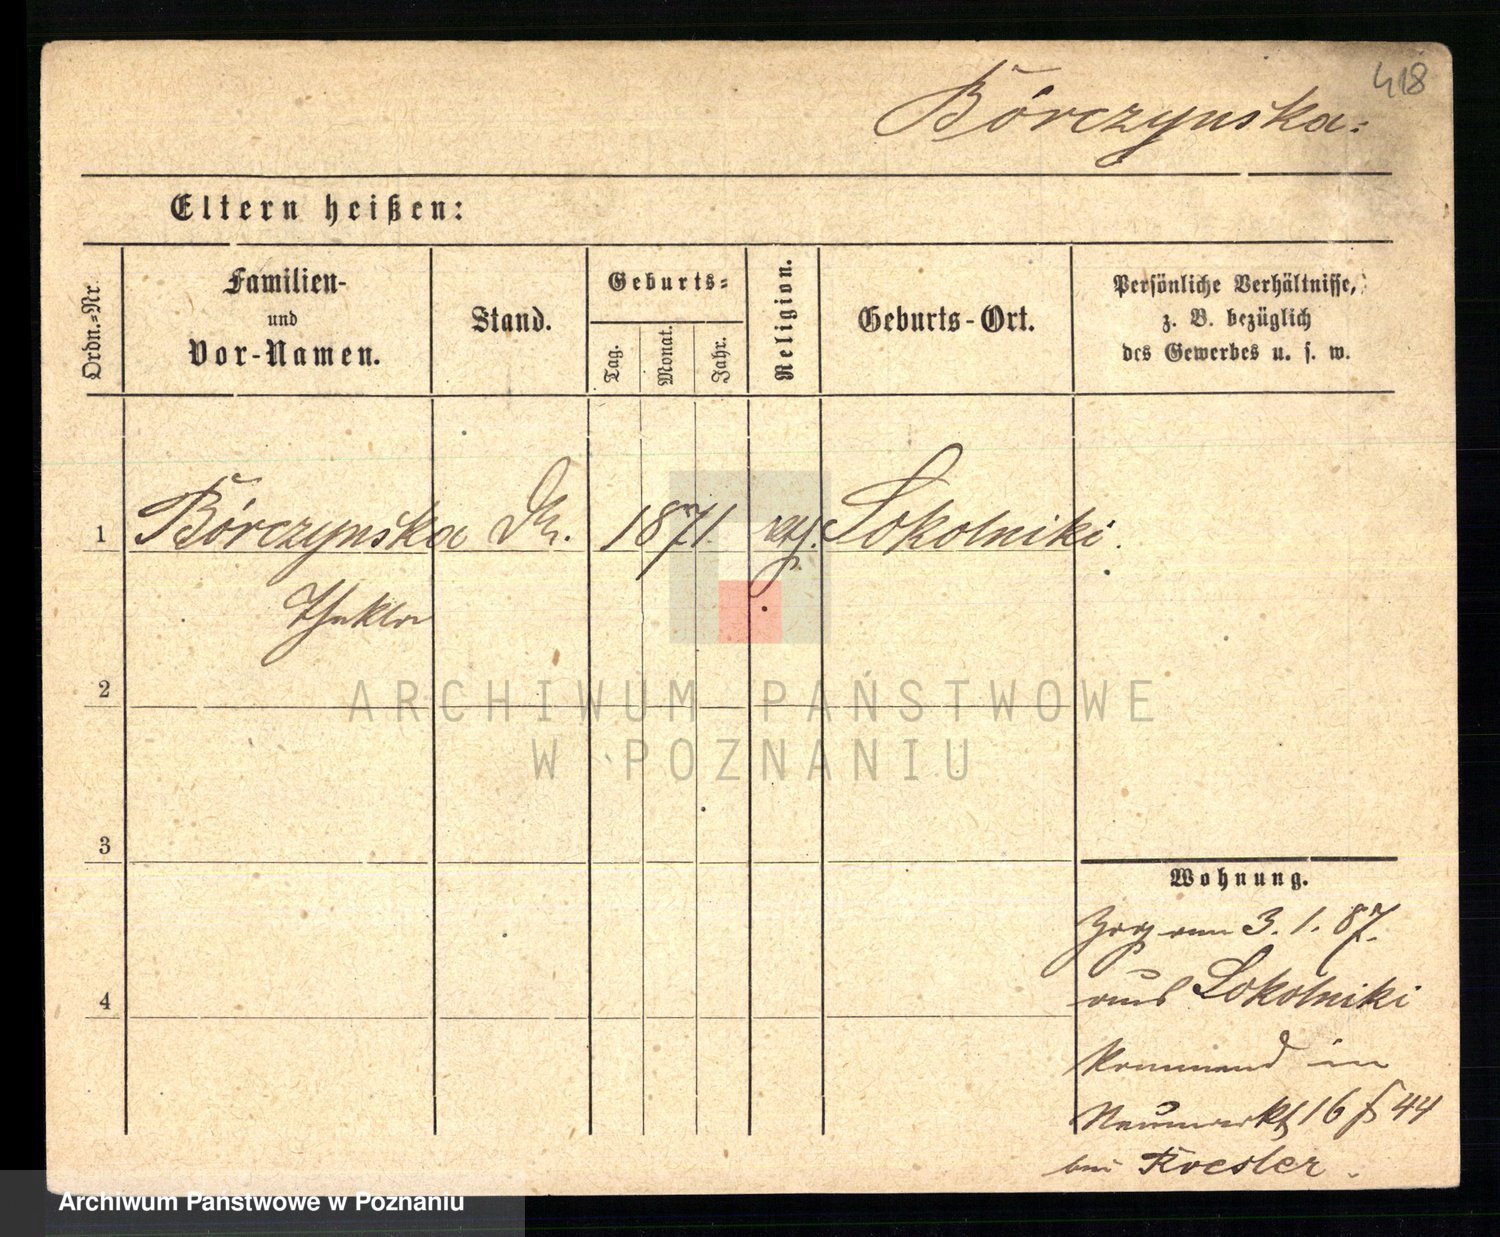 418
Bórczynska.
Eltern heißen:
Ordn.=Nr.
Familien-
und
Vor-Namen.
Stand.
Geburts=
Tag.
Monat.
Jahr.
Religion.
Geburts-Ort.
Persönliche Verhältnisse,
z. B. bezüglich
des Gewerbes u. s. w.
1 Bórczynska 1871 Sokolniki.
Thekla
2
ARCHIWUM PAŃSTWOWE
W POZNANIU
3
Wohnung.
Zog am 3.1.87.
4 aus Sokolniki
kommend in
Neumarkt 16 44
bei Roesler.
Archiwum Państwowe w Poznaniu